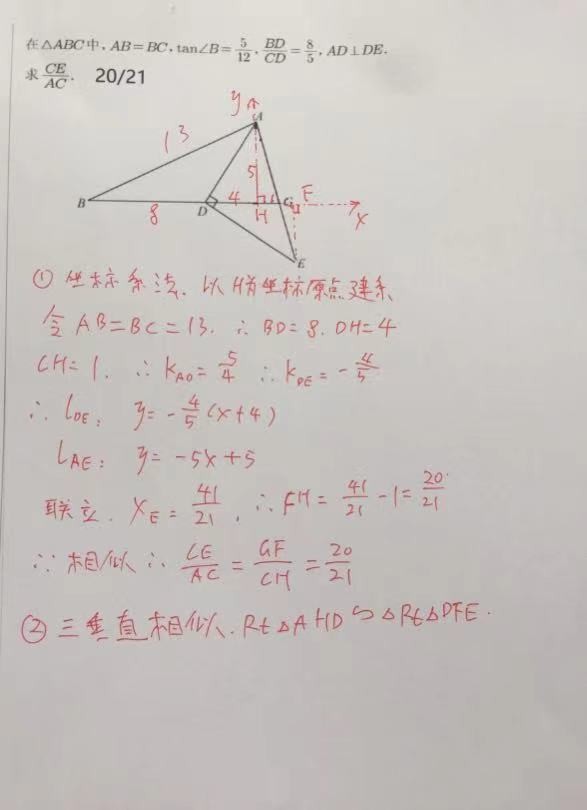 在△ABC中, AB=BC, tan∠B=5/12, BD/CD=8/5, AD⊥DE.
求 CE/AC. 20/21
y
A
13
5
B
D
4
C
F
8
H
1
x
E
① 坐标系法. 以H为坐标原点建系
令 AB=BC=13. ∴ BD=8. DH=4
CH=1. ∴ kAD=5/4 ∴ kDE=-4/5
∴ lDE: y=-4/5(x+4)
lAE: y=-5x+5
联立. xE=41/21, ∴ FH=41/21-1=20/21
∵相似 ∴ CE/AC=GF/CH=20/21
② 三垂直相似. Rt△AHD∽△Rt△DFE.